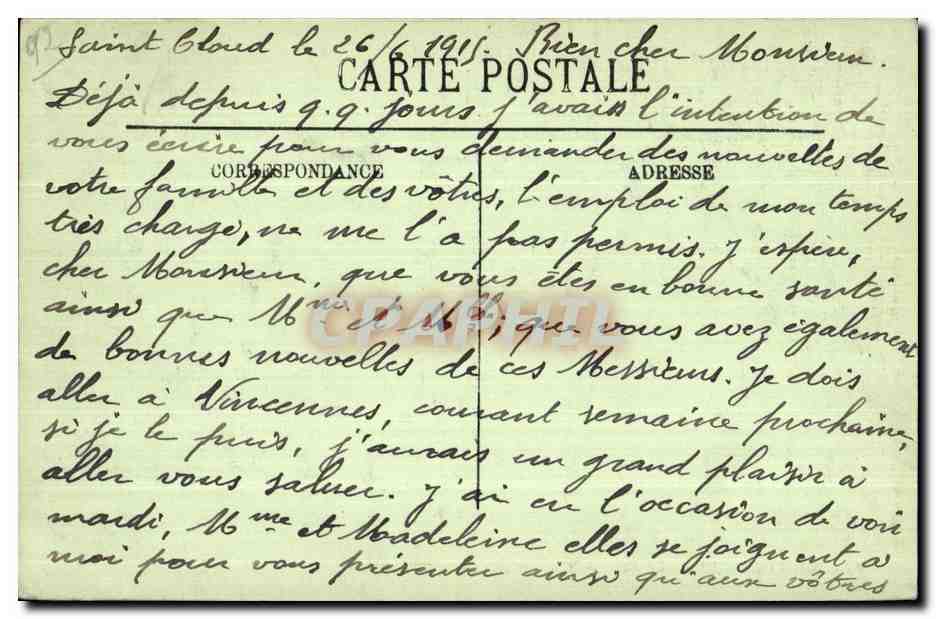 Saint Cloud le 26/6 1915. Bien cher Monsieur.
CARTE POSTALE
Déjà depuis q.q. jours j'avais l'intention de
vous écrire pour vous demander des nouvelles de
CORRESPONDANCE
ADRESSE
votre famille et des vôtres, l'emploi de mon temps
très chargé, ne me l'a pas permis. J'espère,
cher Monsieur, que vous êtes en bonne santé
ainsi que Mme et Mlle; que vous avez également
CPAPHIL
de bonnes nouvelles de ces Messieurs. Je dois
aller à Vincennes, courant semaine prochaine,
si je le puis, j'aurais un grand plaisir à
aller vous saluer. J'ai eu l'occasion de voir
mardi, Mme et Madeleine elles se joignent à
moi pour vous présenter ainsi qu'aux vôtres